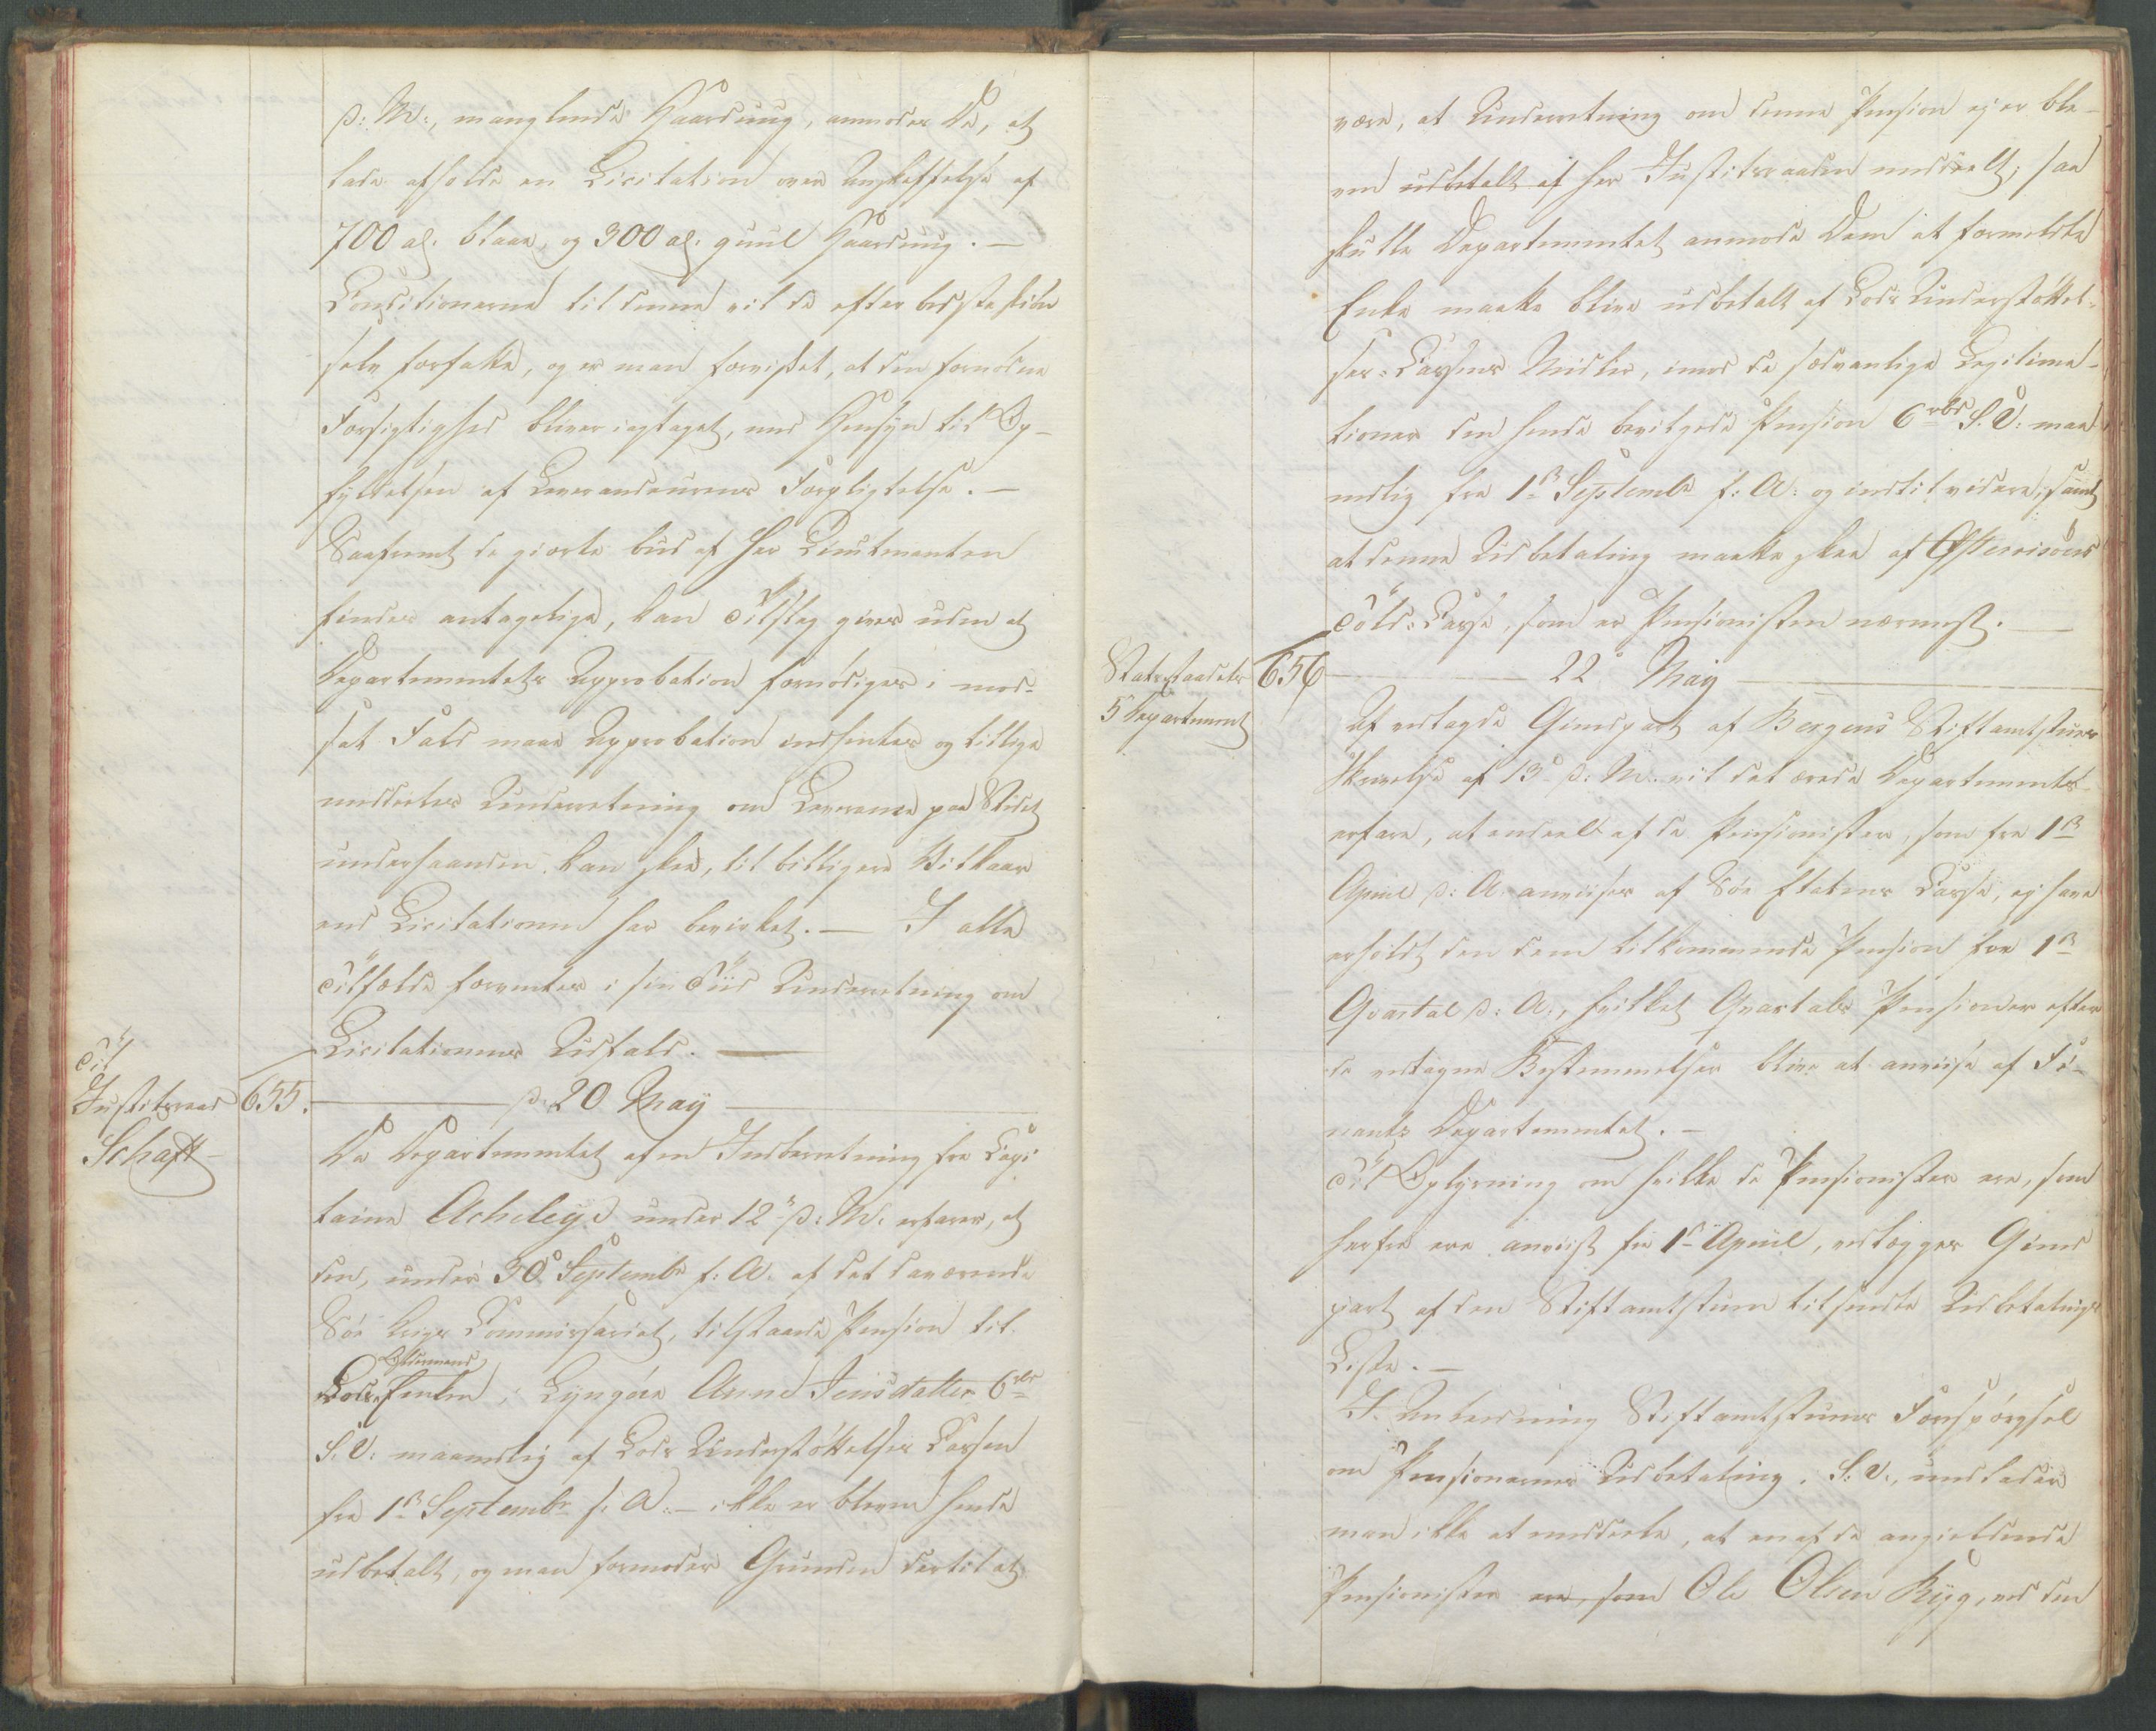 d: M:, manglende Flagduug, anmodes De, at
lade afholde en Licitation over Anskaffelse af
700 al: blaae, og 300 al: guul Flagduug. —
Conditionerne til denne vil De efter bedste skiøn
selv forfatte, og er man forvisset, at den fornødne
Forsigtighed bliver iagttaget, med Hensyn til Op-
fyldelsen af Leverandeurens Forpligtelse. —
Saafremt de giorte bud af Her Lieutenanten
findes antagelige, kan Tilslag gives uden at
Departementets Approbation fornødiges i mod-
sat Fald maae Approbation indhentes og tillige
meddeles Underretning om Leverance paa Stedet
underhaanden kan skee, til billigere Vilkaar
end Licitationen har bevirket. — I alle
Tilfælde forventes i sin Tiid Underretning om
Licitationens Udfald. —
Til
Justitsraad
Schaft
655.
d: 20 May
Da Departementet af en Indberetning fra Capi
taine Acheleye under 12te d: M: erfarer, at
den, under 30 Septembr f: A: af det daværende
Søe Krigs Commissariat, tilstaaede Pension til
Oldermand
Lods Enken, i Lyngøer Anne Jensdatter 6 rbd
S.V: maanedlig af Lods Understøttelses Cassen
fra 1ste Septembr f: A: — ikke er bleven hende
udbetalt, og man formoder Grunden dertil at
være, at Underretning om denne Pension ej er ble-
ven udbetalt af Her Justitsraaden meddeelt; saa
skulle Departementet anmode Dem at formeldte
Enke maatte blive udbetalt af Lods Understøttel-
ses-Cassens Midler, imod de sædvanlige Legitima-
tioner den hende bevilgede Pension 6 rbd S.V: maa
nedlig fra 1ste Septembr f: A: og indtil videre, samt
at denne Udbetaling maatte skee af Østerrisøers
Told-Casse, som er Pensionisten nærmest. —
Statsraadets
5 Departement
656
22 May
Af vedlagde Gienpart af Bergens Stiftamtstues
Skrivelse af 13de d: M: vil det ærede Departement
erfare, at endeel af de Pensionister, som fra 1ste
April d: A: anviises af Søe Etatens Casse, ej have
erholdt den dem tilkommende Pension for 1ste
Qvartal d: A:, hvilket Qvartals Pensioner efter
de vedtagne Bestemmelser blive at anviise af Fi-
nants Departementet. —
Til Oplysning om hvilke de Pensionister ere, som
herfra ere anviist fra 1ste April, vedlægges Gien
part af den Stiftamtstuen tilsendte Udbetalings
Liste. —
I Anledning Stiftamtstuens Forespørgsel
om Pensionernes Udbetaling. S: V:, undlader
man ikke at meddele, at en af de angieldende
Pensionister ere, som Ole Olsen Ryg, ved den